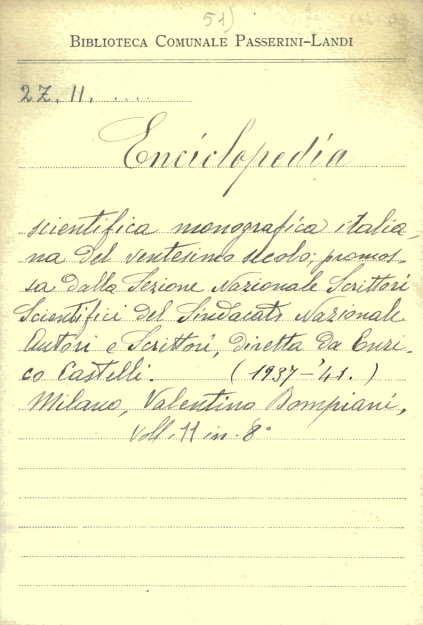 51)
BIBLIOTECA COMUNALE PASSERINI-LANDI
2Z. 11. . . . .
Enciclopedia
scientifica monografica italia-
na del ventesimo secolo; promos-
sa dalla Sezione Nazionale Scrittori
Scientifici del Sindacato Nazionale
Autori e Scrittori, diretta da Enri-
co Castelli. (1937-'41.)
Milano, Valentino Bompiani,
voll. 11 in. 8°